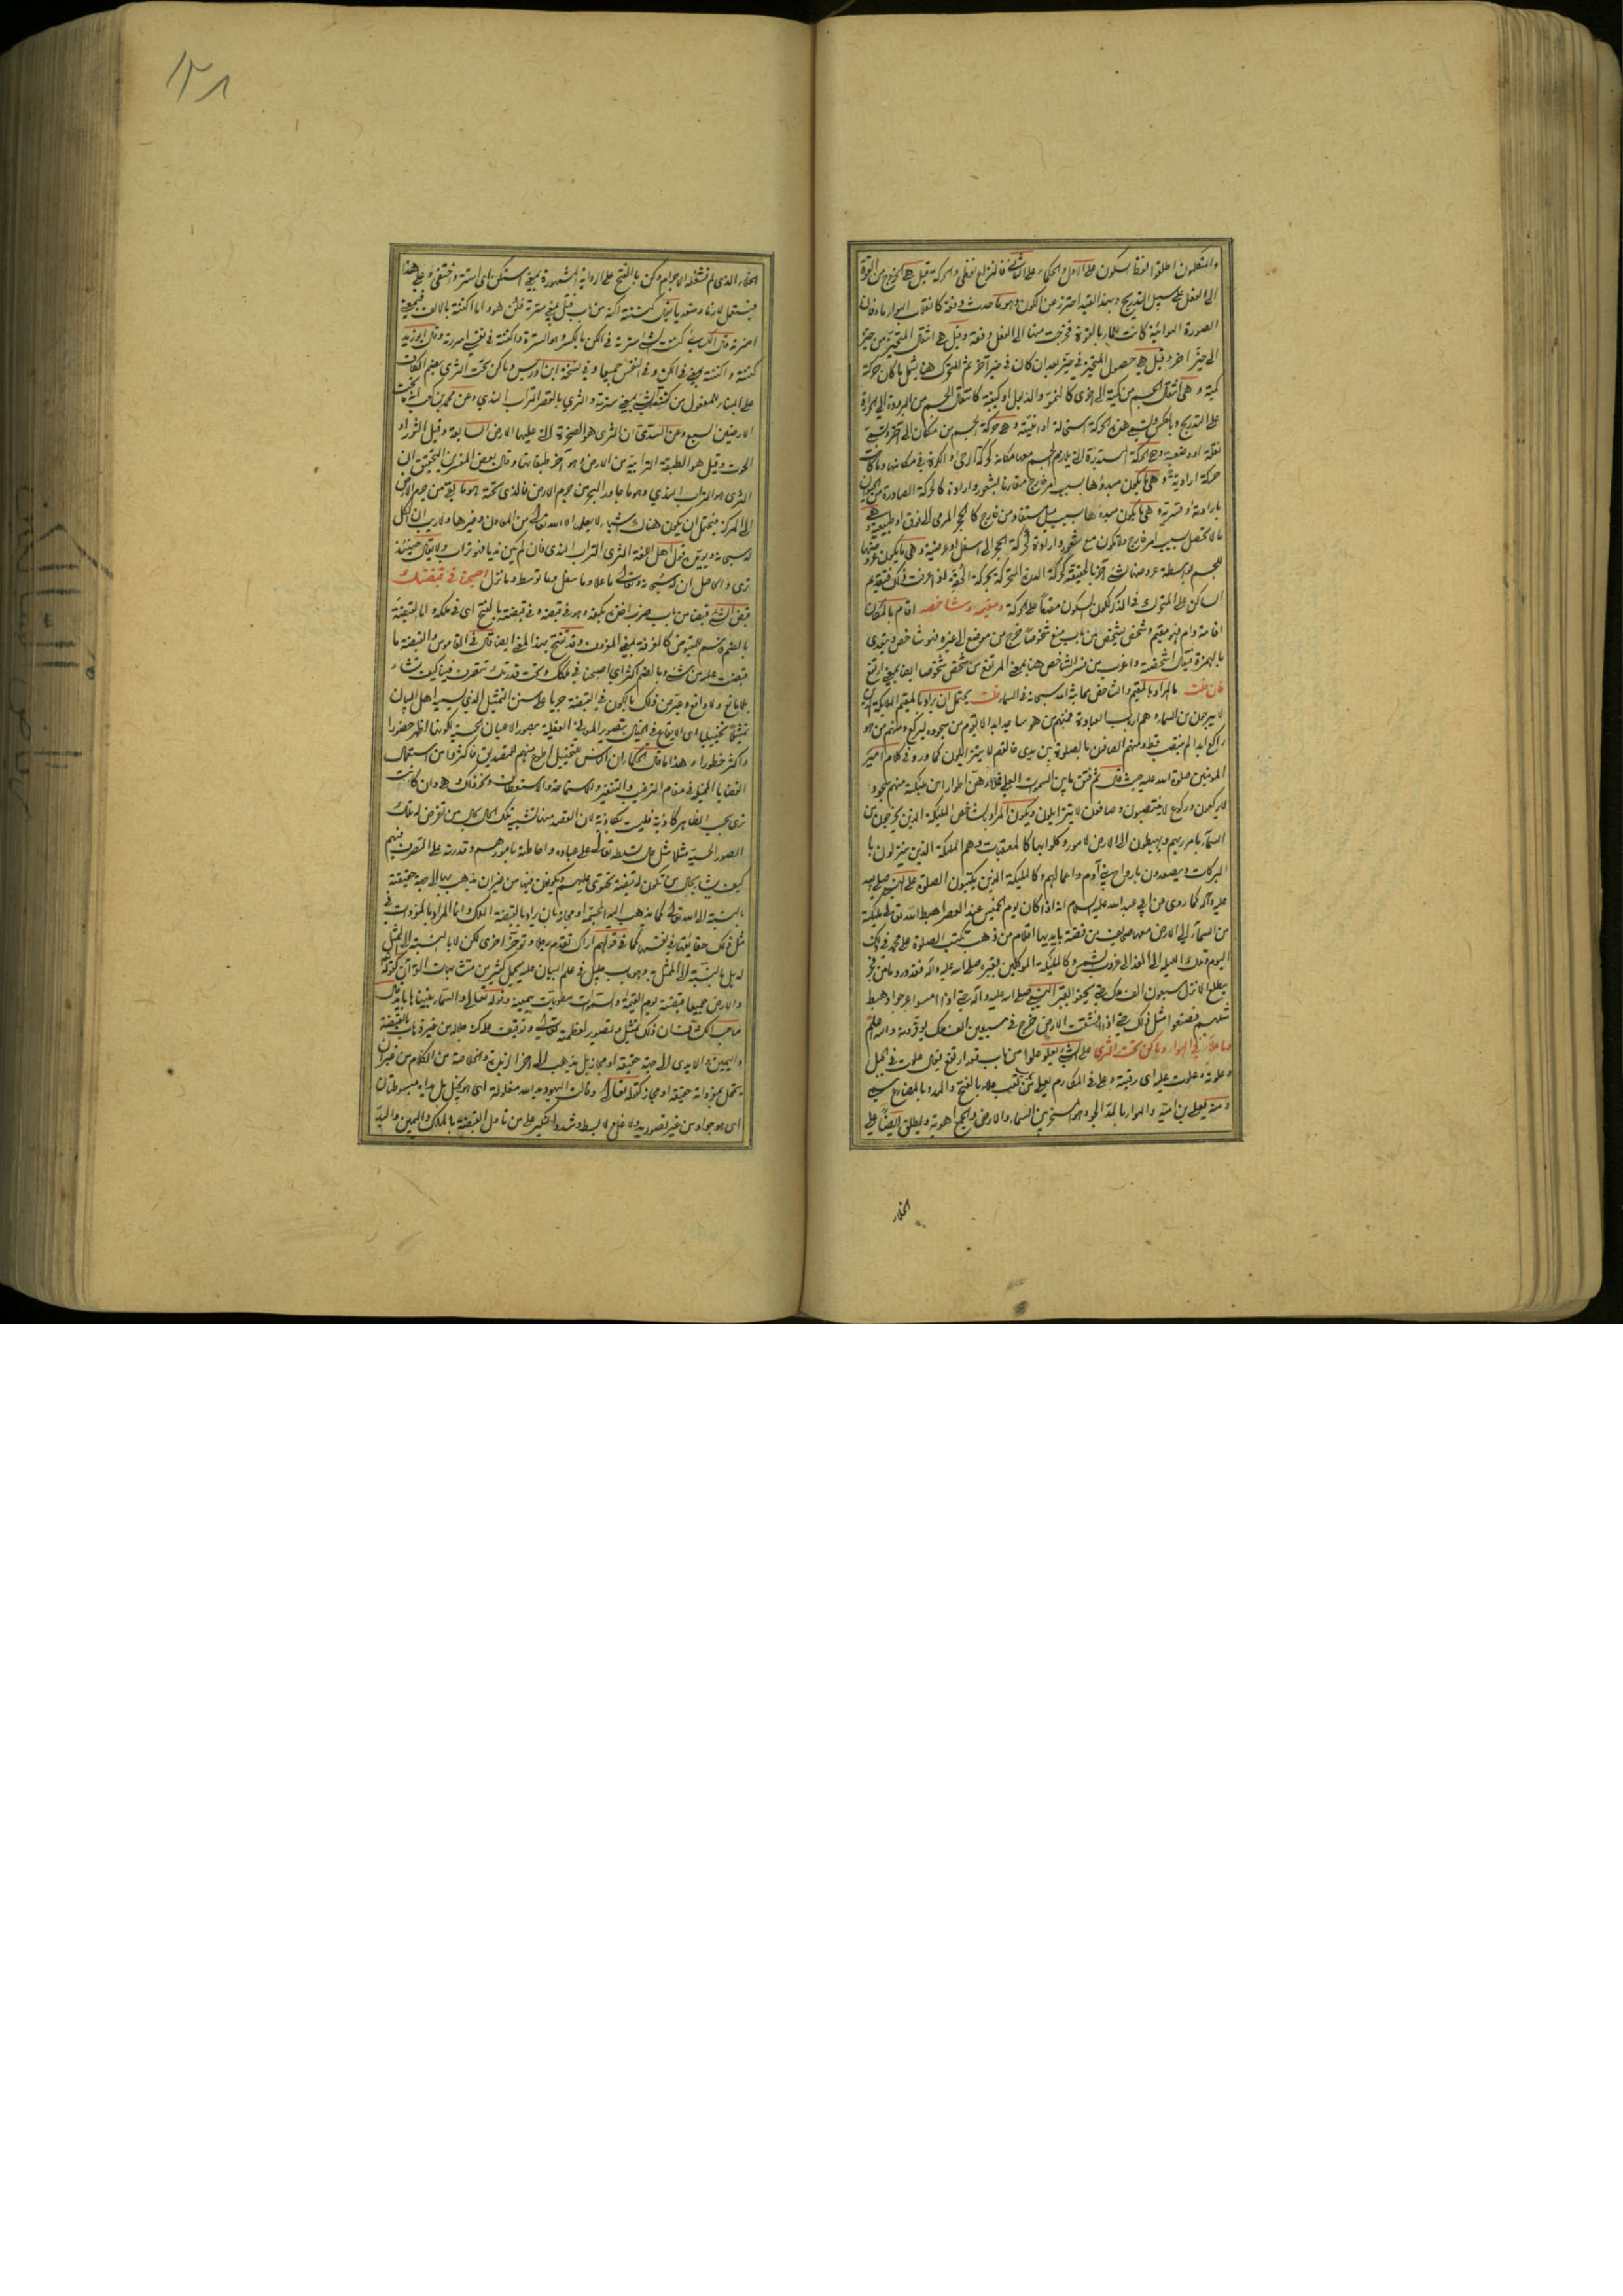 والمتكلمون اطلقوا لفظ السكون على الاول والحكماء على الثاني فالنزاع لفظي والحركة قيل هي الخروج من القوة
الى الفعل على سبيل التدريج وبهذا القيد احترز عن الكون وهو ما حدث دفعة كانقلاب الهواء ماء فان
الصورة الهوائية كانت للماء بالقوة فخرجت منها الى الفعل دفعة وقيل هي انتقال المتحيز من حيز
الى حيز اخر وقيل هي حصول المتحيز في حيز بعد ان كان في حيز آخر ثم المتحرك هنا يشمل ما كان حركة
كمية وهي انتقال الجسم من كمية الى اخرى كالنمو والذبول او كيفية كانتقال الجسم من البرودة الى الحرارة
على التدريج وبالعكس وتسمى هذه الحركة استحالة او اينية وهي حركة الجسم من مكان الى آخر وتسمى
نقلة او وضعية وهي الحركة المستديرة التي يلازم الجسم معها مكانه كحركة الرحى والكرة في مكانها وما كانت
حركة ارادية وهي ما يكون مبدؤها بسبب امر خارج مقارنا بشعور وارادة كالحركة الصادرة من الحيوان
بارادته او قسرية وهي ما يكون مبدؤها بسبب ميل مستفاد من خارج كالحجر المرمي الى فوق او طبيعية وهي
ما لا تحصل بسبب امر خارج ولا تكون مع شعور وارادة كحركة الحجر الى اسفل او عرضية وهي ما يكون عروضها
للجسم بواسطة عروضها لشئ آخر بالحقيقة كحركة
الساكن على المتحرك في الذكر لكون السكون مقدما على الحركة ومقيمه وشاخصه اقام بالمكان
اقامة دام فهو مقيم وشخص يشخص من باب منع شخوصا خرج من موضع الى غيره فهو شاخص ويتعدى
بالهمزة فيقال اشخصته
فان قلت ما المراد بالمقيم والشاخص مما بثه الله سبحانه في السماء قلت يحتمل ان يراد بالمقيم الملائكة الذين
لا يبرحون من السماء وهم ارباب العبادة فمنهم من هو ساجد ابدا لا يقوم من سجوده ليركع ومنهم من هو
راكع ابدا لم ينتصب قط ومنهم الصافون بالصلوة بين يدي خالقهم لا يتزايلون كما ورد في كلام امير
المؤمنين صلوة الله عليه حيث قال ثم فتق ما بين السموات العلى فملأهن اطوارا من ملئكته منهم سجود
لا يركعون وركوع لا ينتصبون وصافون لا يتزايلون ويكون المراد بالشاخص الملئكة الذين يخرجون من
السماء بامر ربهم ويهبطون الى الارض لامور وكلوا بها كالمعقبات وهم الملئكة الذين ينزلون با
البركات ويصعدون بارواح بني آدم واعمالهم وكالملئكة الذين يكتبون الصلوة على النبي صلى الله
عليه وآله كما روي عن ابي عبد الله عليه السلام انه اذا كان يوم الخميس عند العصر اهبط الله تعالى ملئكة
من السماء الى الارض معها صحايف من فضة بايديها اقلام من ذهب تكتب الصلوة على محمد في ذلك
اليوم وتلك الليلة الى الغد الى غروب الشمس وكالملئكة الموكلين بقبره صلى الله عليه وآله فقد ورد ما من فجر
يطلع الا نزل سبعون الف ملك حتى يحفوا بقبر النبي صلى الله عليه وآله حتى اذا امسوا عرجوا وهبط
مثلهم فصنعوا مثل ذلك حتى اذا انشقت الارض خرج في سبعين الف ملك يوقرونه والله اعلم
وما علا في الهواء وما كن تحت الثرى علا الشئ يعلو علوا من باب قعد ارتفع يقال علوت في الجبل
وعلوته وعلوت عليه اى رقيته وعلى في المكارم يعلى من باب تعب علاء بالفتح والمد وبالمضارع سمي
ومنه يعلى بن امية والهواء بالمد الجو وهو المسخر بين السماء والارض والجمع اهوية ويطلق ايضا على
الخلاء
١٢٨
الخلاء الذي لم تشغله الاجرام وكن بالفتح على الرواية المشهورة بمعنى استكن اى استتر واختفى وعلى هذا
فيستعمل لازما ومتعديا يقال كننته اكنه من باب قتل بمعنى سترته
اضمرته قال الكسائي كننت الشئ سترته في الكن بالكسر وهو السترة واكننته في نفسي اسررته وقال ابو زيد
كننته واكننته بمعنى في الكن وفي النفس جميعا وفي نسخة ابن ادريس وما كن تحت الثرى بضم الكاف
على البناء للمفعول من كننته بمعنى سترته والثرى بالقصر التراب الندي وعن محمد بن كعب انه ما تحت
الارضين السبع وعن السدي ان الثرى هو الصخرة التي عليها الارض السابعة وقيل الثور او
الحوت وقيل هو الطبقة الترابية من الارض وهو آخر طبقاتها وقال بعض المفسرين التحقيق ان
الثرى هو التراب الندي وهو ما جاور البحر من جرم الارض فالذي تحته هو ما بقي من جرم الارض
الى المركز فيحتمل ان يكون هناك اشياء لا يعلمها الا الله تعالى من المعادن وغيرها ولا ريب ان الكل
له سبحانه ويؤيده قول اهل اللغة الثرى التراب الندي فان لم يكن نديا فهو تراب ولا يقال حينئذ
ثرى والحاصل ان له سبحانه وتعالى ما علا وما سفل وما توسط وما نزل اصبحنا في قبضتك
قبض الشئ قبضا من باب ضرب اخذه بكفه وهو في قبضه وفي قبضته بالفتح اى في ملكه واما القبضة
بالضم فاسم للمقبوض كالغرفة بمعنى المغروف وقد تفتح بهذا المعنى ايضا قال في القاموس والقبضة ما
قبضت عليه من شئ وبالضم اكثر اى اصبحنا في ملكك وتحت قدرتك تتصرف فينا كيف تشاء
بلا مانع ولا دافع وعبر عن ذلك بالكون في القبضة جريا على سنن التمثيل الذي يسميه اهل البيان
تمثيلا تخييليا اى الايقاع في الخيال بتصوير المعاني العقلية بصور الاعيان الحسية لكونها اظهر حضورا
واكثر خطورا وهذا ما قال الحكماء ان الناس للتخييل اطوع منهم للتصديق فاكثروا من استعمال
القضايا المخيلة في مقام الترغيب والتنفير والاستماحة والاستعطاف ونحو ذلك وهي وان كانت
ترى بحسب الظاهر كاذبة فليست بكاذبة لان القصد منها تشبيه تلك الحال بحال من تفرض له تلك
الصور الحسية مثلا مثل حال تسلطه تعالى على عباده واحاطته بامورهم وقدرته على التصرف فيهم
كيف يشاء بحال من تكون له قبضة تحتوي عليهم ويكونون فيها من غير ان يذهب بها الى جهة حقيقة
بالنسبة الى الله تعالى كما يذهب اليه المجسمة او مجاز بان يراد بالقبضة الملك وانما المراد بالمفردات في
مثل ذلك حقايقها في انفسها كما في قولهم اراك تقدم رجلا وتؤخر اخرى لكن لا بالنسبة الى الممثل
له بل بالنسبة الى الممثل به وهو باب جليل في علم البيان عليه يحمل كثير من متشابهات القرآن كقوله
والارض جميعا قبضته يوم القيمة والسموات مطويات بيمينه وقوله تعالى والسماء بنيناها بايد قال
صاحب الكشاف ان ذلك تمثيل وتصوير لعظمته تعالى وتوقيف على كنه جلاله من غير ذهاب بالقبضة
واليمين والايدي الى جهة حقيقة او مجاز بل يذهب الى اخذ الزبدة والخلاصة من الكلام من غير ان
يتمحل بمفرداته حقيقة او مجاز كقوله تعالى وقالت اليهود يد الله مغلولة اى هو بخيل بل يداه مبسوطتان
اى هو جواد من غير تصور يد ولا غل ولا بسط وشدد النكير على من تاول القبضة بالملك واليمين واليد